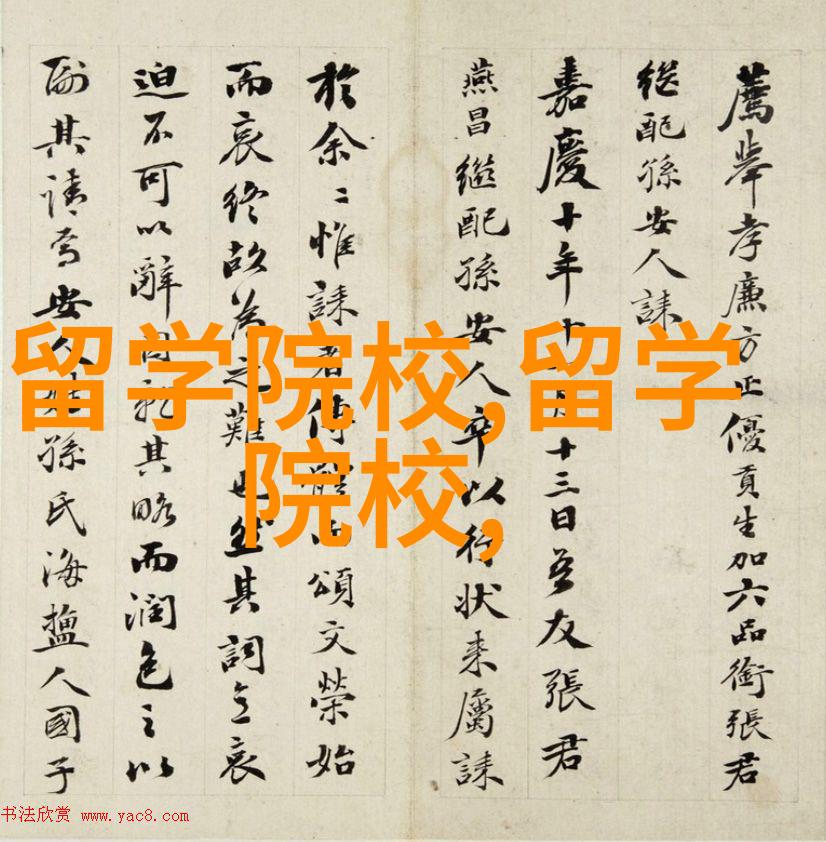 薦舉孝廉方正優貢生加六品銜張君
继配孫安人誄
嘉慶十年十一月十三日吾友張君
燕昌繼配孫安人卒以行狀来屬誄
於余〻惟誄者傳體頌文榮始
而哀終故为之難也然其詞立哀
迫不可以辭因就其略而潤色之以
副其請焉安人姓孫氏海鹽人國子
留学院校,留学
院校,
书法欣赏 www.yac8.com